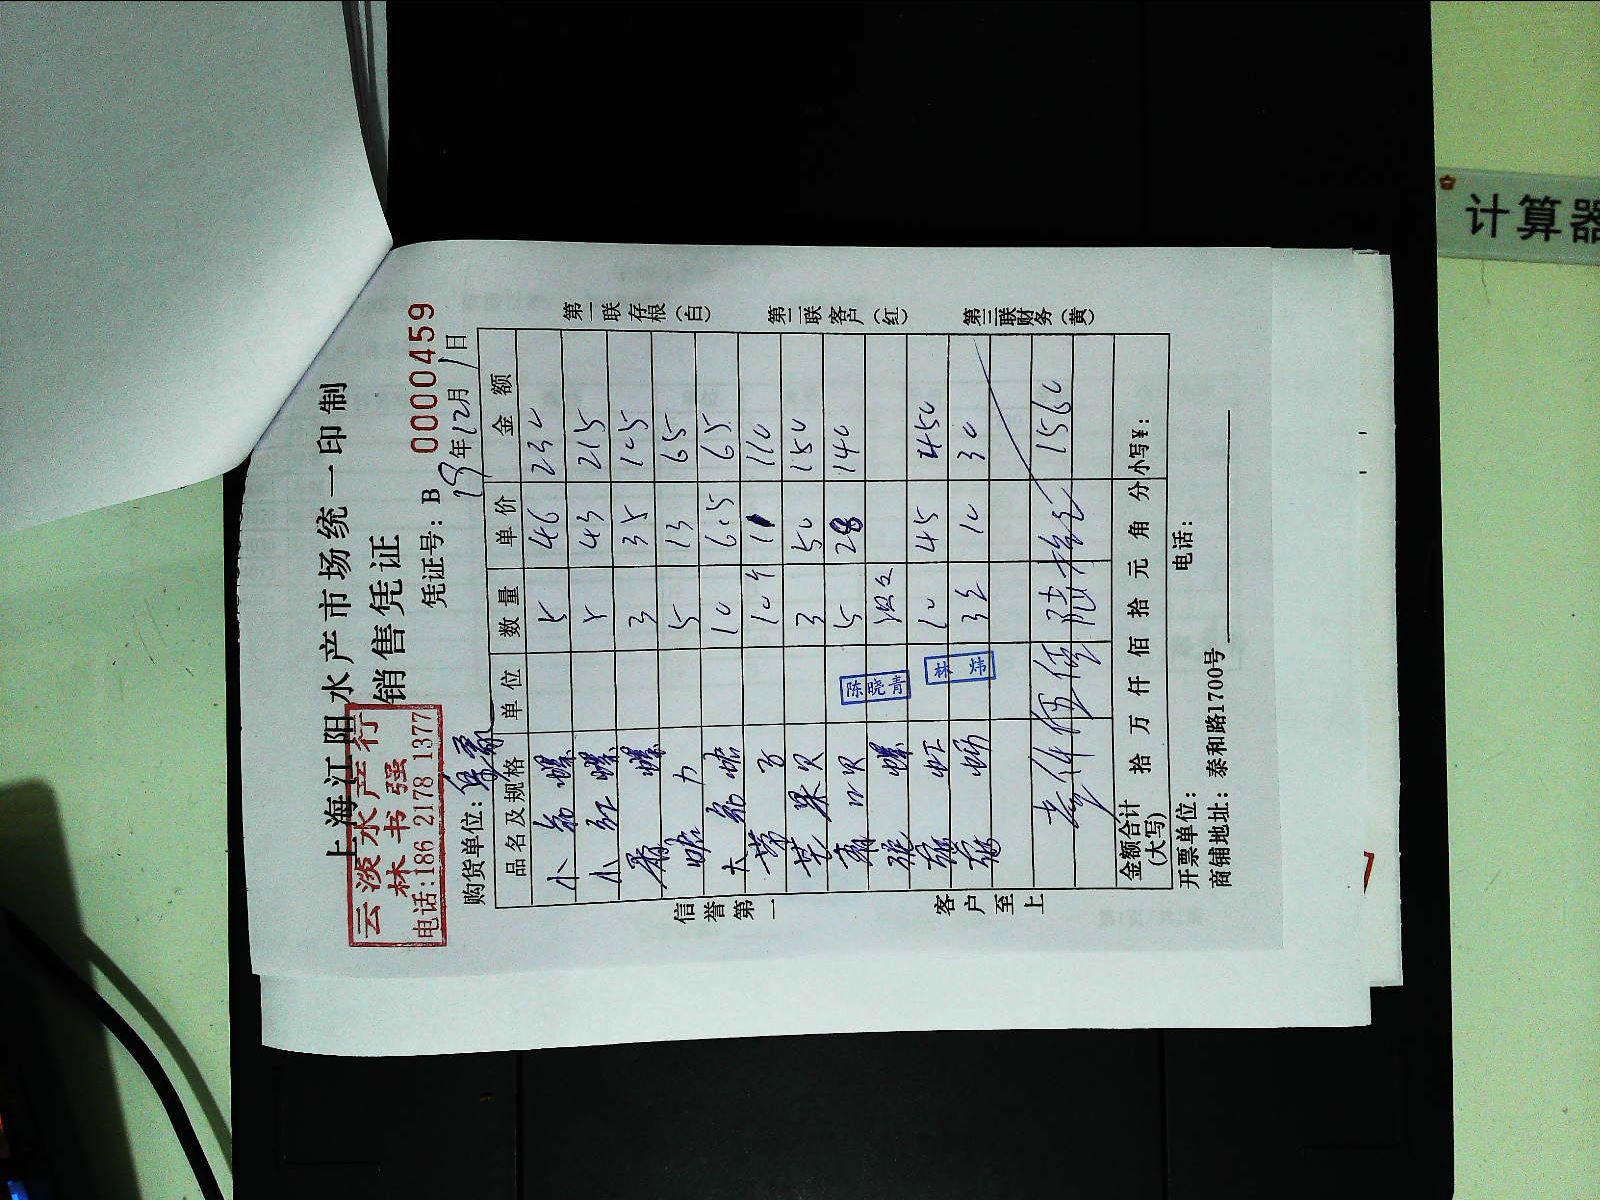 上海江阳水产市场统一印制
销售凭证
云淡水产行
林书强
电话:186 2178 1377
凭证号: B 0000459
购货单位:
19年12月1日
品名及规格 单位 数量 单价 金额
小 螺 5 46 230
小红螺 5 43 215
螺 3 35 105
5 13 65
大 10 6.5 65
10个 11 110
贝 3 50 150
贝 5 28 140
螺
虾 10 45 450
3 10 30
壹仟伍佰陆拾元 1560
金额合计
(大写)
拾 万 仟 佰 拾 元 角 分 小写¥:
开票单位: 电话:
商铺地址: 泰和路1700号
第一联存根(白)
第二联客户(红)
第三联财务(黄)
信誉第一
客户至上
陈晓青
林炜
计算器